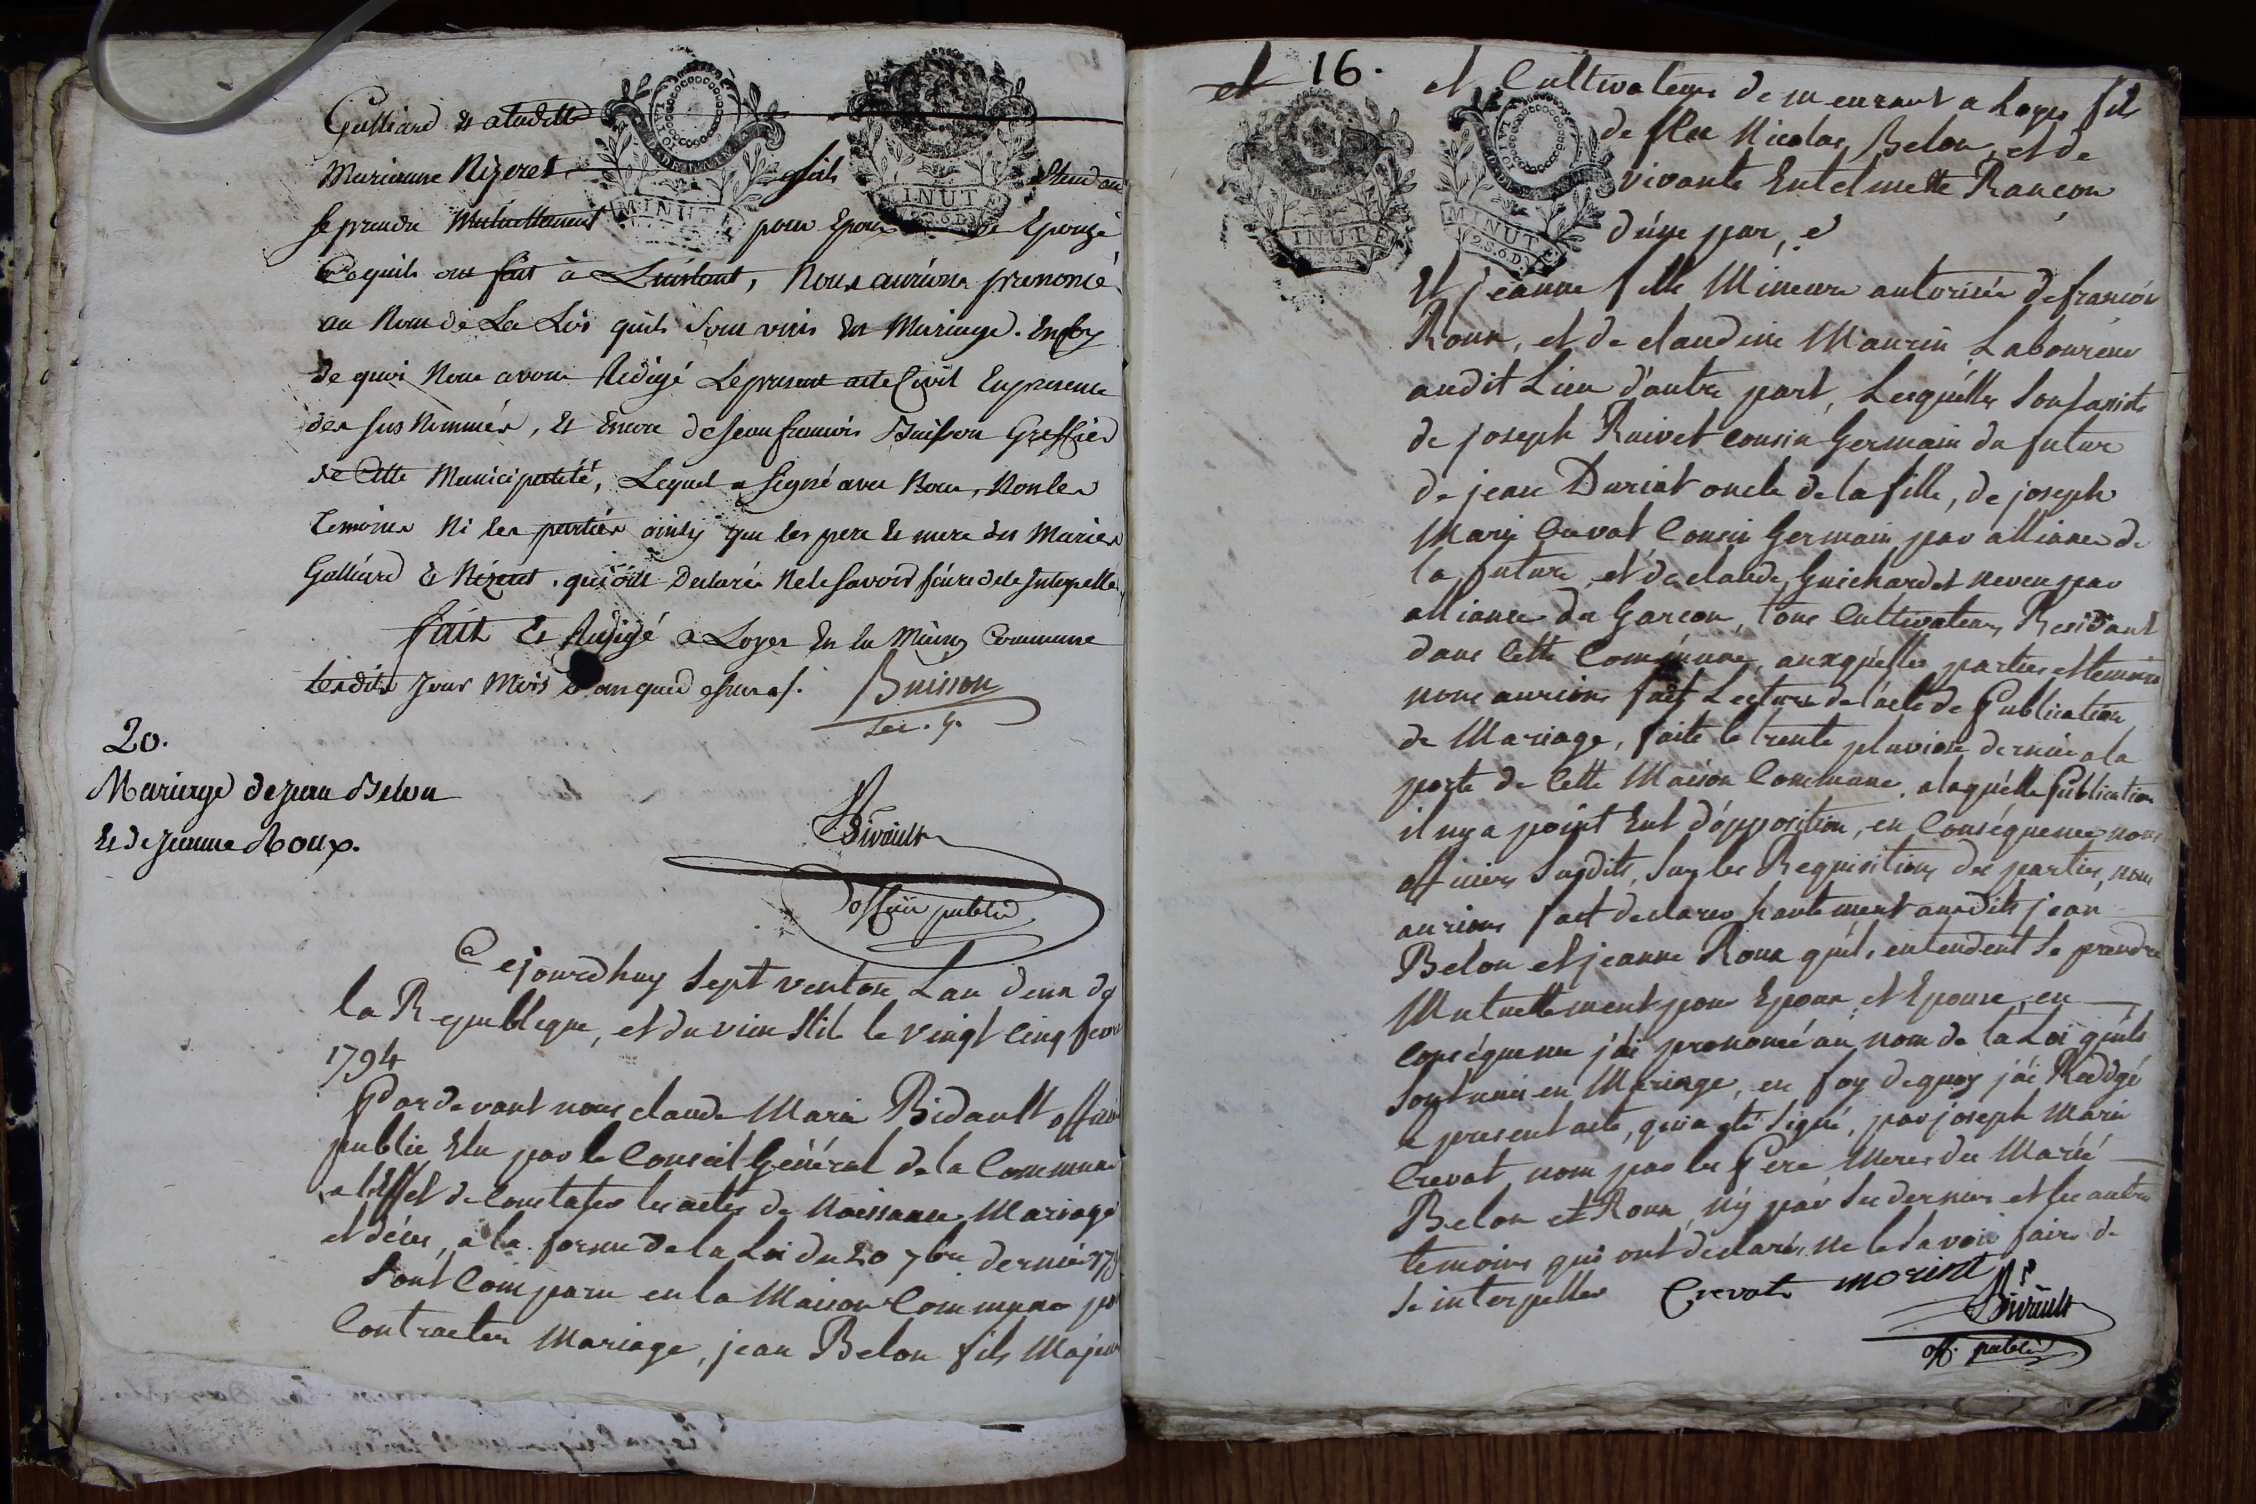 Galliard & a ladtte
Marianne Nizeret
se prendre Mutuellement pour Epoux Epouze
Ce quils ont fait à Linstant, Nous aurions prenoncé
au Nom de La Loi quils sont unis En Mariage. En foy
de quoi Nous avons Rédigé Le present acte Civil En presence
des sus Nommés, & Encore de Jean françois Buisson Greffier
de Cette Municipalité, Lequel a signé avec Nous, Non les
Temoins Ni les parties ainsy que les pere & mere des Mariés
Galliard & Nizeret, qui ont Declaré Ne le savoir faire de ce Interpellés
fait & Rédigé a Loyes En La Maison Commune
lesdits Jour Mois & an que dessus.
Buisson
sec. g.
20.
Mariage de Jean Belon
& de Jeanne Roux.
Bidault
officier public
Cejourdhuy sept ventose Lan deux de
la Republique, et du vieux stil le vingt cinq fevrier
1794
Pardevant nous claude Marie Bidault officier
public Elu par le Conseil Général de la Commune
a l'Effet de Constater les actes de Naissance Mariage
et décès, a la forme de la Loi du 20 7bre dernier
sont Comparu en la Maison Commune pour
Contracter Mariage, jean Belon fils Majeur
et 16.
et Cultivateur demeurant a Loyes fils
de feu Nicolas Belon, et de
vivante Entelmette Rançon
d'une part, e
Et jeanne fille Mineure autorisée de françois
Roux, et de claudine Maurin Laboureur
audit Lieu d'autre part, Lesquelles sont assistés
de joseph Ruivet cousin Germain du futur
de jean Duriat oncle de la fille, de joseph
Marie Crevat Cousin Germain par alliance de
la future, et de claude Guichardet neveu par
alliance du Garçon, tous Cultivateurs Residant
dans Cette Commune, auxquelles parties et temoins
nous aurions fait Lecture de l'acte de Publication
de Mariage, faite le trente pluviose dernier a la
porte de Cette Maison Commune, a laquelle Publication
il ny a point Eut d'opposition, en Conséquence nous
officier susdits, sur les Requisitions des parties, nous
aurions fait declarer hautement auxdits jean
Belon et jeanne Roux quils entendent se prendre
Mutuellement pour Epoux et Epouse, en
conséquence j'ai prononcé au nom de la Loi quils
sont unis en Mariage, en foy de quoy j'ai Redigé
le present acte, qui a eté signé, par joseph Marie
Crevat, nom par les Pere Meres des Mariés
Belon et Roux, ny par ses derniers et les autres
temoins qui ont declarés ne le savoir faire de
se interpellés Crevat morist
Bidault
off. public